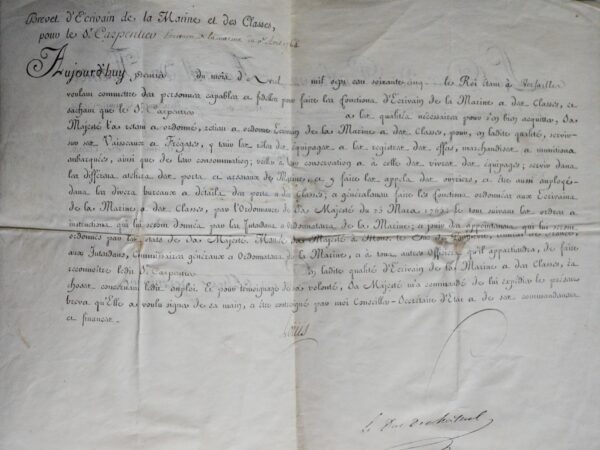 Brevet d'Ecrivain de la Marine et des Classes,
pour le Sr. Carpentier
Aujourd'huy premier du mois d'Avril mil sept cent soixante cinq le Roi étant à Versailles
voulant commettre des personnes capables et fidelles pour faire les fonctions d'Ecrivain de la Marine et des Classes, et
sachant que le S. Carpentier a les qualités nécessaires pour s'en bien acquitter, Sa
Majesté l'a retenu et ordonné, retient et ordonne Ecrivain de la Marine et des Classes, pour, en ladite qualité, servir
sur ses Vaisseaux et Frégates, y tenir les rôles des équipages et les registres des effets, marchandises et munitions
embarquées, ainsi que de leur consommation; veiller à leur conservation et à celle des vivres des équipages; servir dans
les différens ateliers des ports et arsenaux de Marine, et y faire les appels des ouvriers, et être aussi employé
dans les divers bureaux et détails des ports et des Classes; et généralement faire les fonctions ordonnées aux Ecrivains
de la Marine et des Classes, par l'Ordonnance de Sa Majesté du 25 Mars 1765 le tout suivant les ordres et
instructions qui lui seront données par les Intendans et Ordonnateurs de la Marine; et jouir des appointemens qui lui seront
ordonnés par les états de Sa Majesté. Mande Sa Majesté à Mons. le
aux Intendans, Commissaires généraux et Ordonnateurs de la Marine, et à tous autres Officiers qu'il appartiendra, de faire
reconnoître ledit S. Carpentier en ladite qualité d'Ecrivain de la Marine et des Classes, ès
choses concernant ledit emploi. Et pour témoignage de sa volonté, Sa Majesté m'a commandé de lui expédier le présent
brevet, qu'Elle a voulu signer de sa main, et être contresigné par moi Conseiller-Secrétaire d'Etat et de ses commandemens
et finances.
Louis
Le Duc de Choiseul